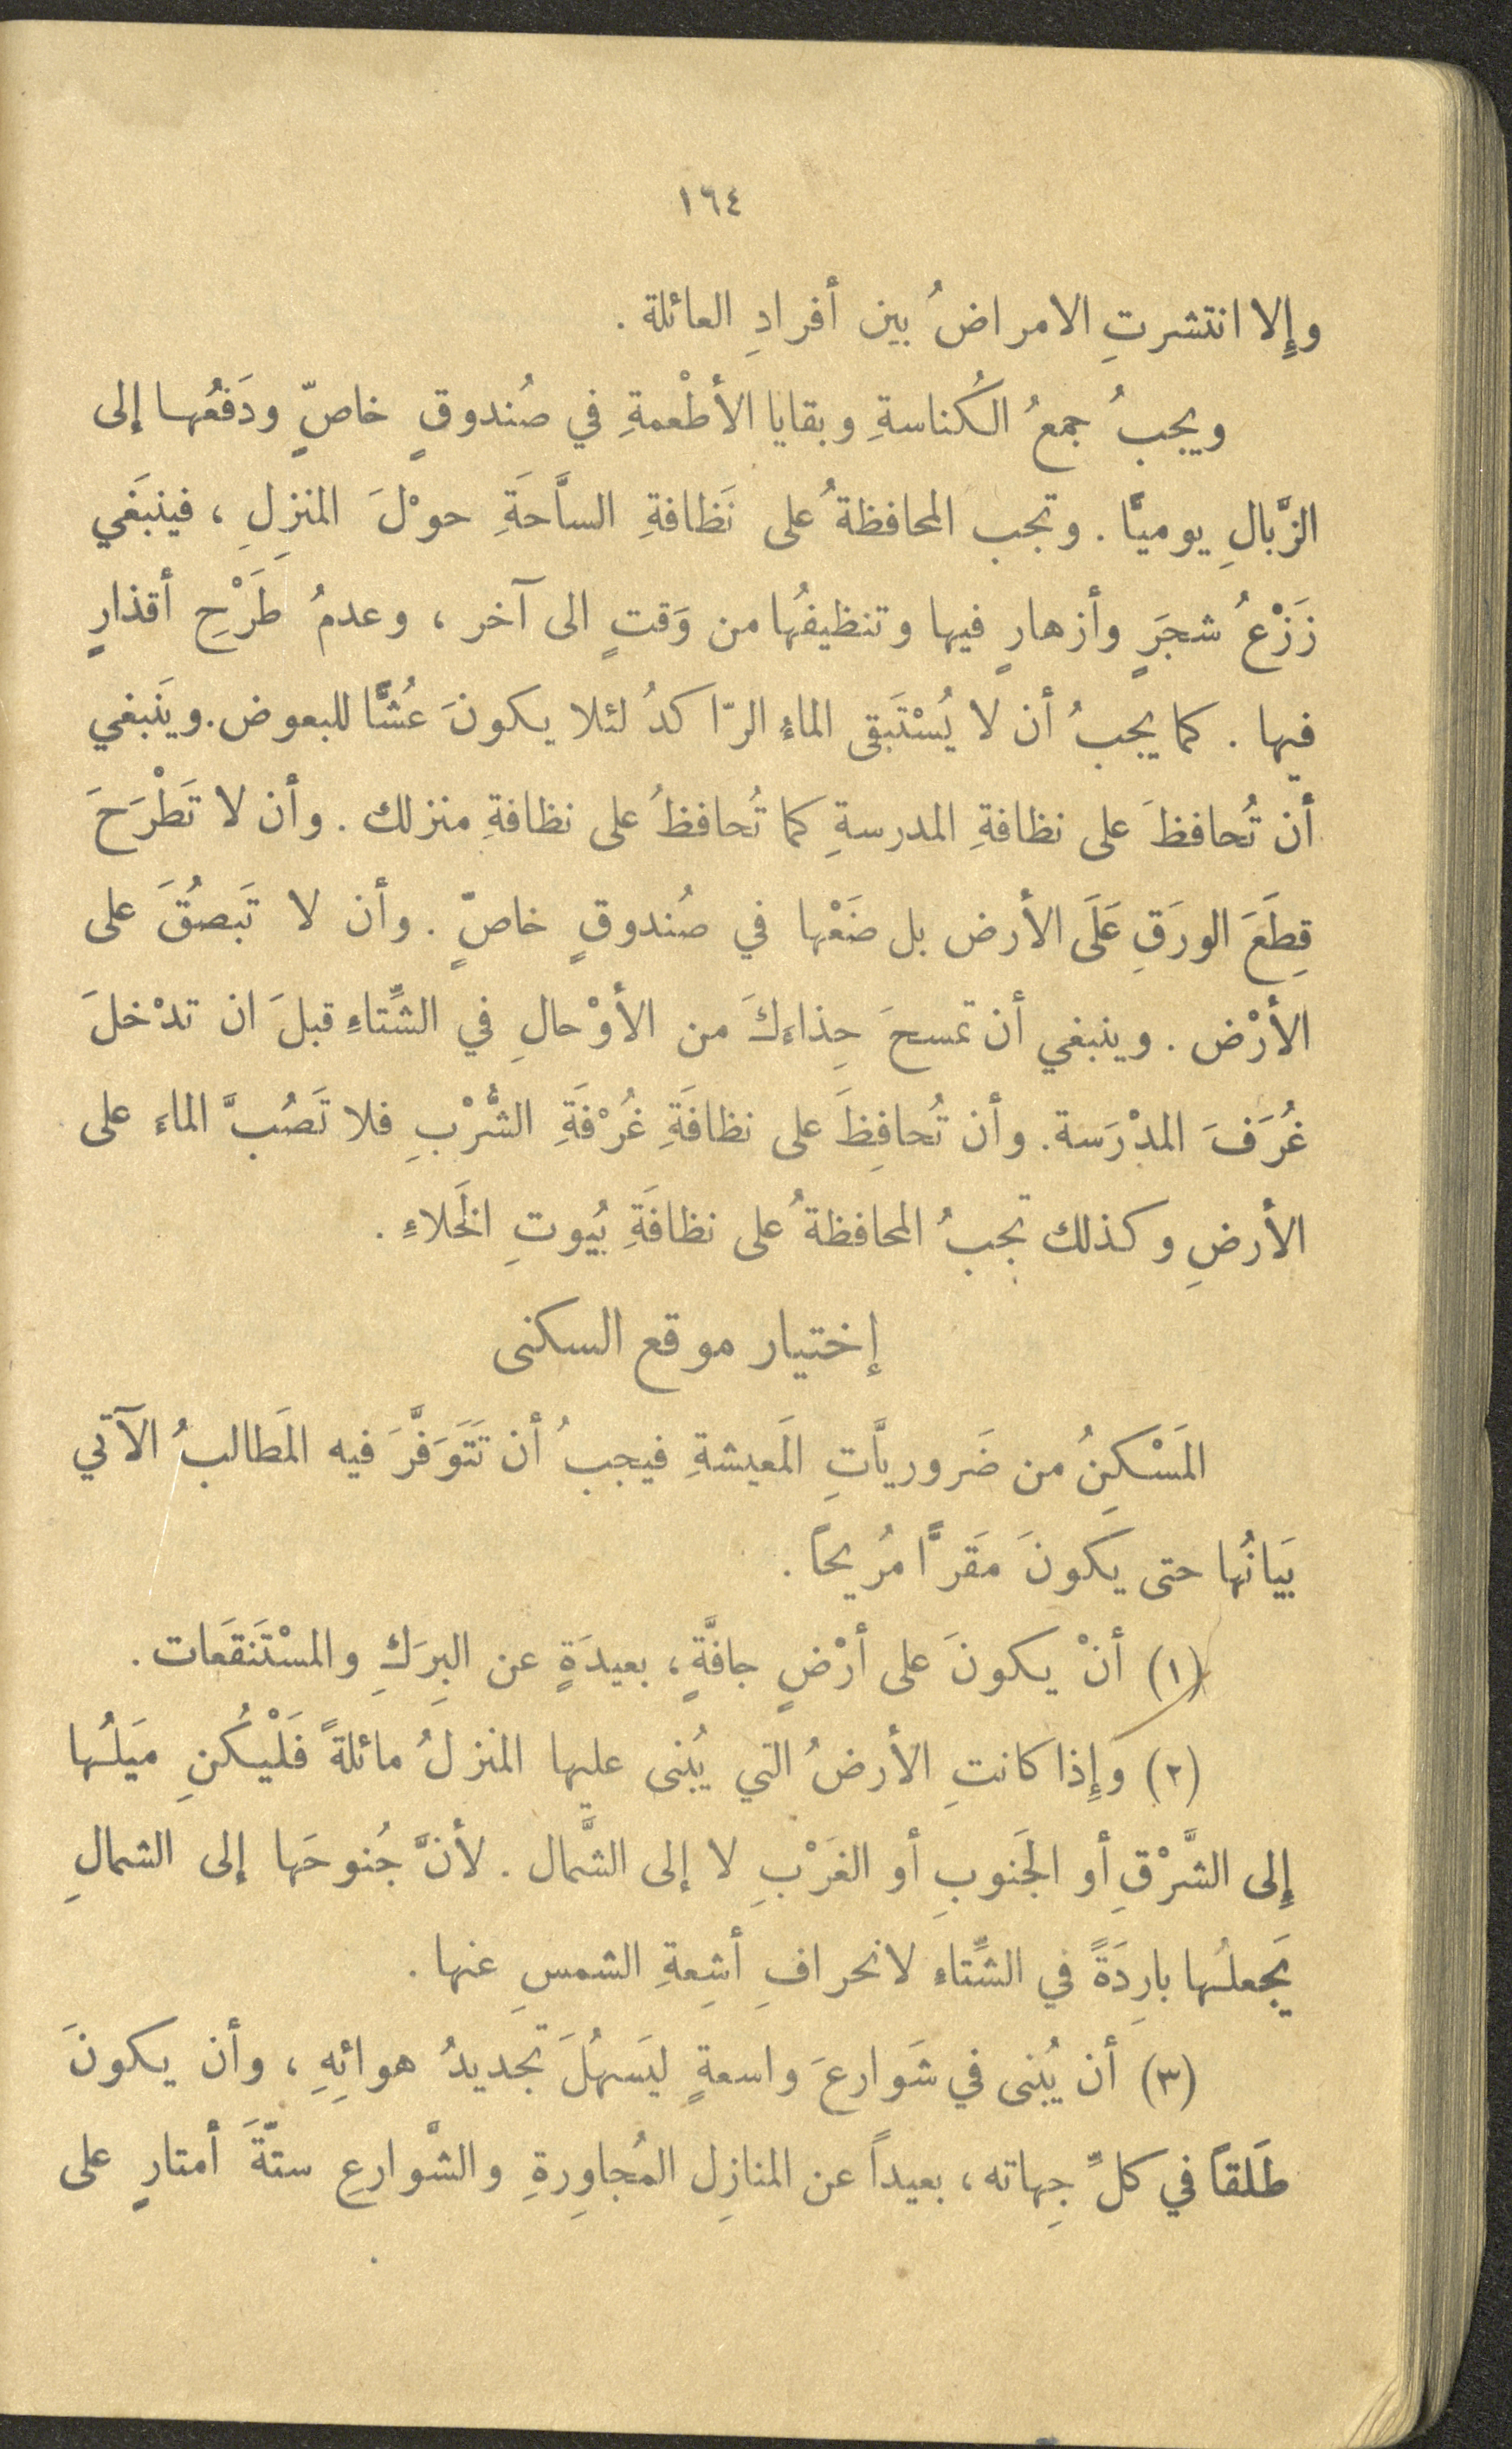 ١٦٤
وإِلا انتشرتِ الامراضُ بين أفرادِ العائلة .
ويجبُ جمعُ الكُناسةِ وبقايا الأطْعمةِ في صُندوقٍ خاصٍّ ودَفعُها إلى
الزَّبالِ يوميًّا . وتجب المحافظةُ على نَظافةِ السَّاحَةِ حوْلَ المنزِلِ ، فينبَغي
زَرْعُ شجَرٍ وأزهارٍ فيها وتنظيفُها من وَقتٍ الى آخر ، وعدمُ طَرْحِ أقذارٍ
فيها . كما يجبُ أن لا يُسْتَبقى الماءُ الرّاكدُ لئلا يكونَ عُشًّا للبعوض . وينَبغي
أن تُحافظَ على نظافةِ المدرسةِ كما تُحافظُ على نظافةِ منزلك . وأن لا تَطْرَحَ
قِطَعَ الورَقِ عَلَى الأرض بل ضَعْها في صُندوقٍ خاصٍّ . وأن لا تَبصُقَ على
الأرْض . وينبغي أن تمسحَ حِذاءَكَ من الأوْحالِ في الشِّتاءِ قبلَ ان تدْخلَ
غُرَفَ المدْرَسة . وأن تُحافِظَ على نظافَةِ غُرْفَةِ الشُّرْبِ فلا تَصُبَّ الماءَ على
الأرضِ وكذلك تجبُ المحافظةُ على نظافَةِ بُيوتِ الخَلاءِ .
إختيار موقع السكنى
المَسْكِنُ من ضَروريَّاتِ المَعيشةِ فيجبُ أن تَتَوَفَّرَ فيه المَطالبُ الآتي
بَيَانُها حتى يكونَ مَقَرًّا مُريحاً .
(١) أنْ يكونَ على أرْضٍ جافَّةٍ ، بعيدَةٍ عن البِرَكِ والمسْتَنقَعات .
(٢) وَإِذا كانتِ الأرضُ التي يُبنى عليها المنزلُ مائلةً فَلْيكُنِ ميَلُها
إِلى الشَّرْقِ أو الجَنوبِ أو الغَرْبِ لا إلى الشَّمال . لأنَّ جُنوحَها إلى الشمالِ
يَجعلُها بارِدَةً في الشِّتاء لانحرافِ أشِعةِ الشمسِ عنها .
(٣) أن يُبنى في شَوارعَ واسعةٍ ليَسهُلَ تجديدُ هوائِهِ ، وأن يكونَ
طَلَقاً في كلِّ جِهاته ، بعيداً عن المنازِل المُجاوِرةِ والشَّوارعِ ستَّةَ أمتارٍ على